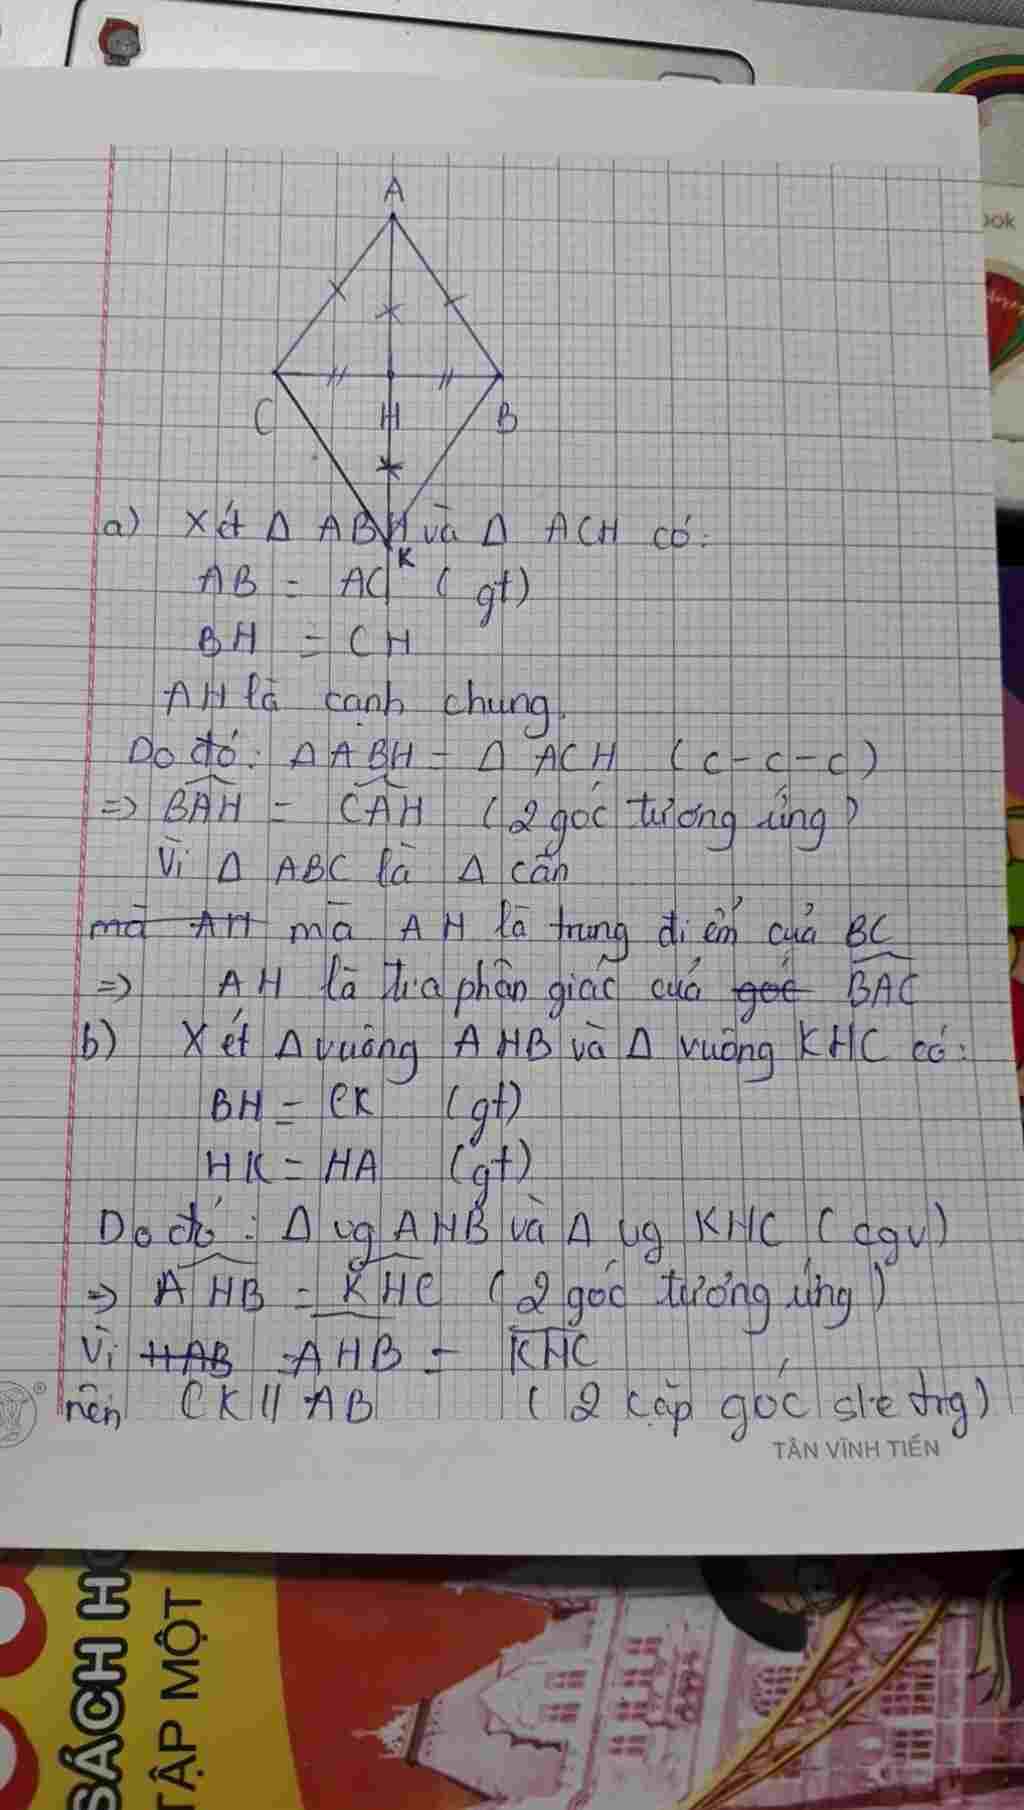 ook
A
C
H
B
K
a) Xét Δ ABH và Δ ACH có:
AB = AC (gt)
BH = CH
AH là cạnh chung.
Do đó: Δ ABH = Δ ACH (c-c-c)
=> BAH = CAH (2 góc tương ứng)
Vì Δ ABC là Δ cân
mà AH mà AH là trung điểm của BC
=> AH là tia phân giác của góc BAC
b) Xét Δ vuông AHB và Δ vuông KHC có:
BH = CK (gt)
HK = HA (gt)
Do đó: Δ vg AHB và Δ vg KHC (cgv)
=> AHB = KHC (2 góc tương ứng)
Vì HAB =AHB = KHC
nên CK // AB (2 cặp góc sle trg)
TÂN VĨNH TIẾN
SÁCH
TẬP MỘT